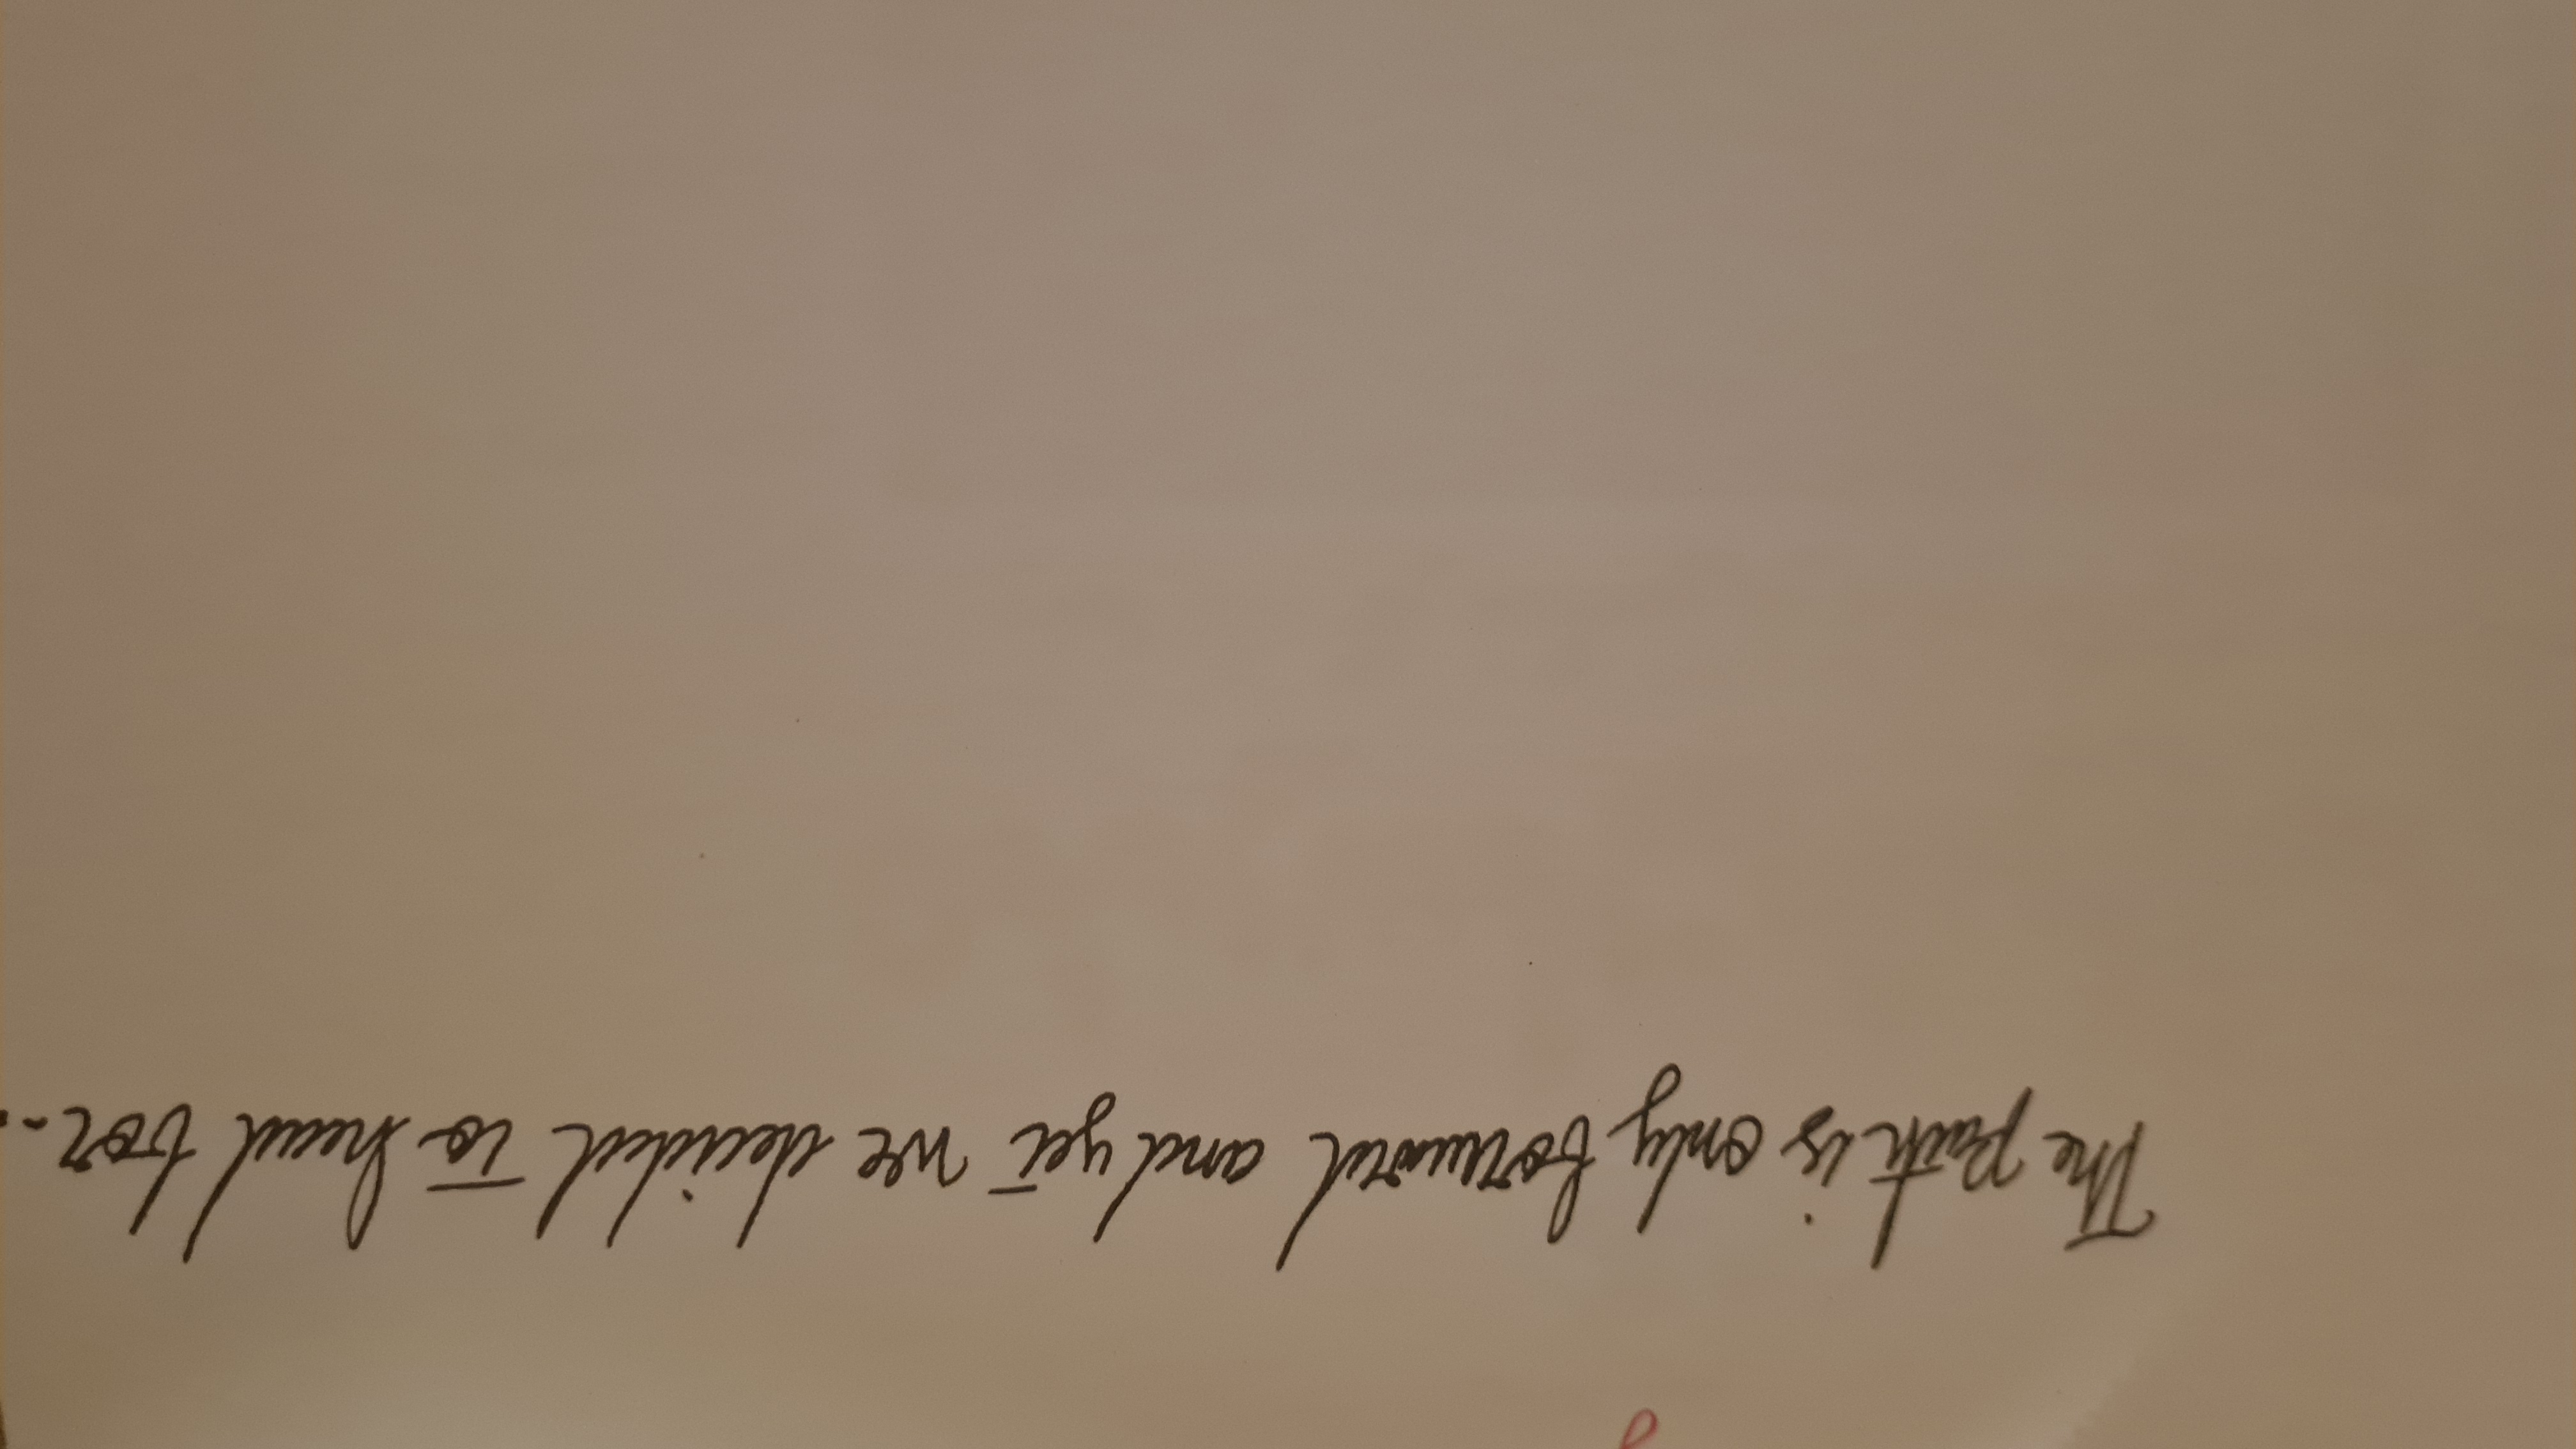 The path is only forward and yet we decided to head for...